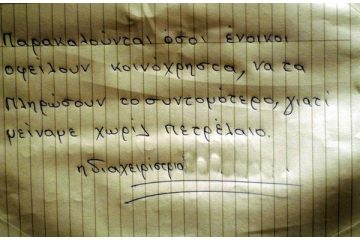 Παρακαλούνται όσοι ένοικοι
οφείλουν κοινόχρηστα, να τα
πληρώσουν το συντομότερο, γιατί
μείναμε χωρίς πετρέλαιο.
η διαχειρίστρια